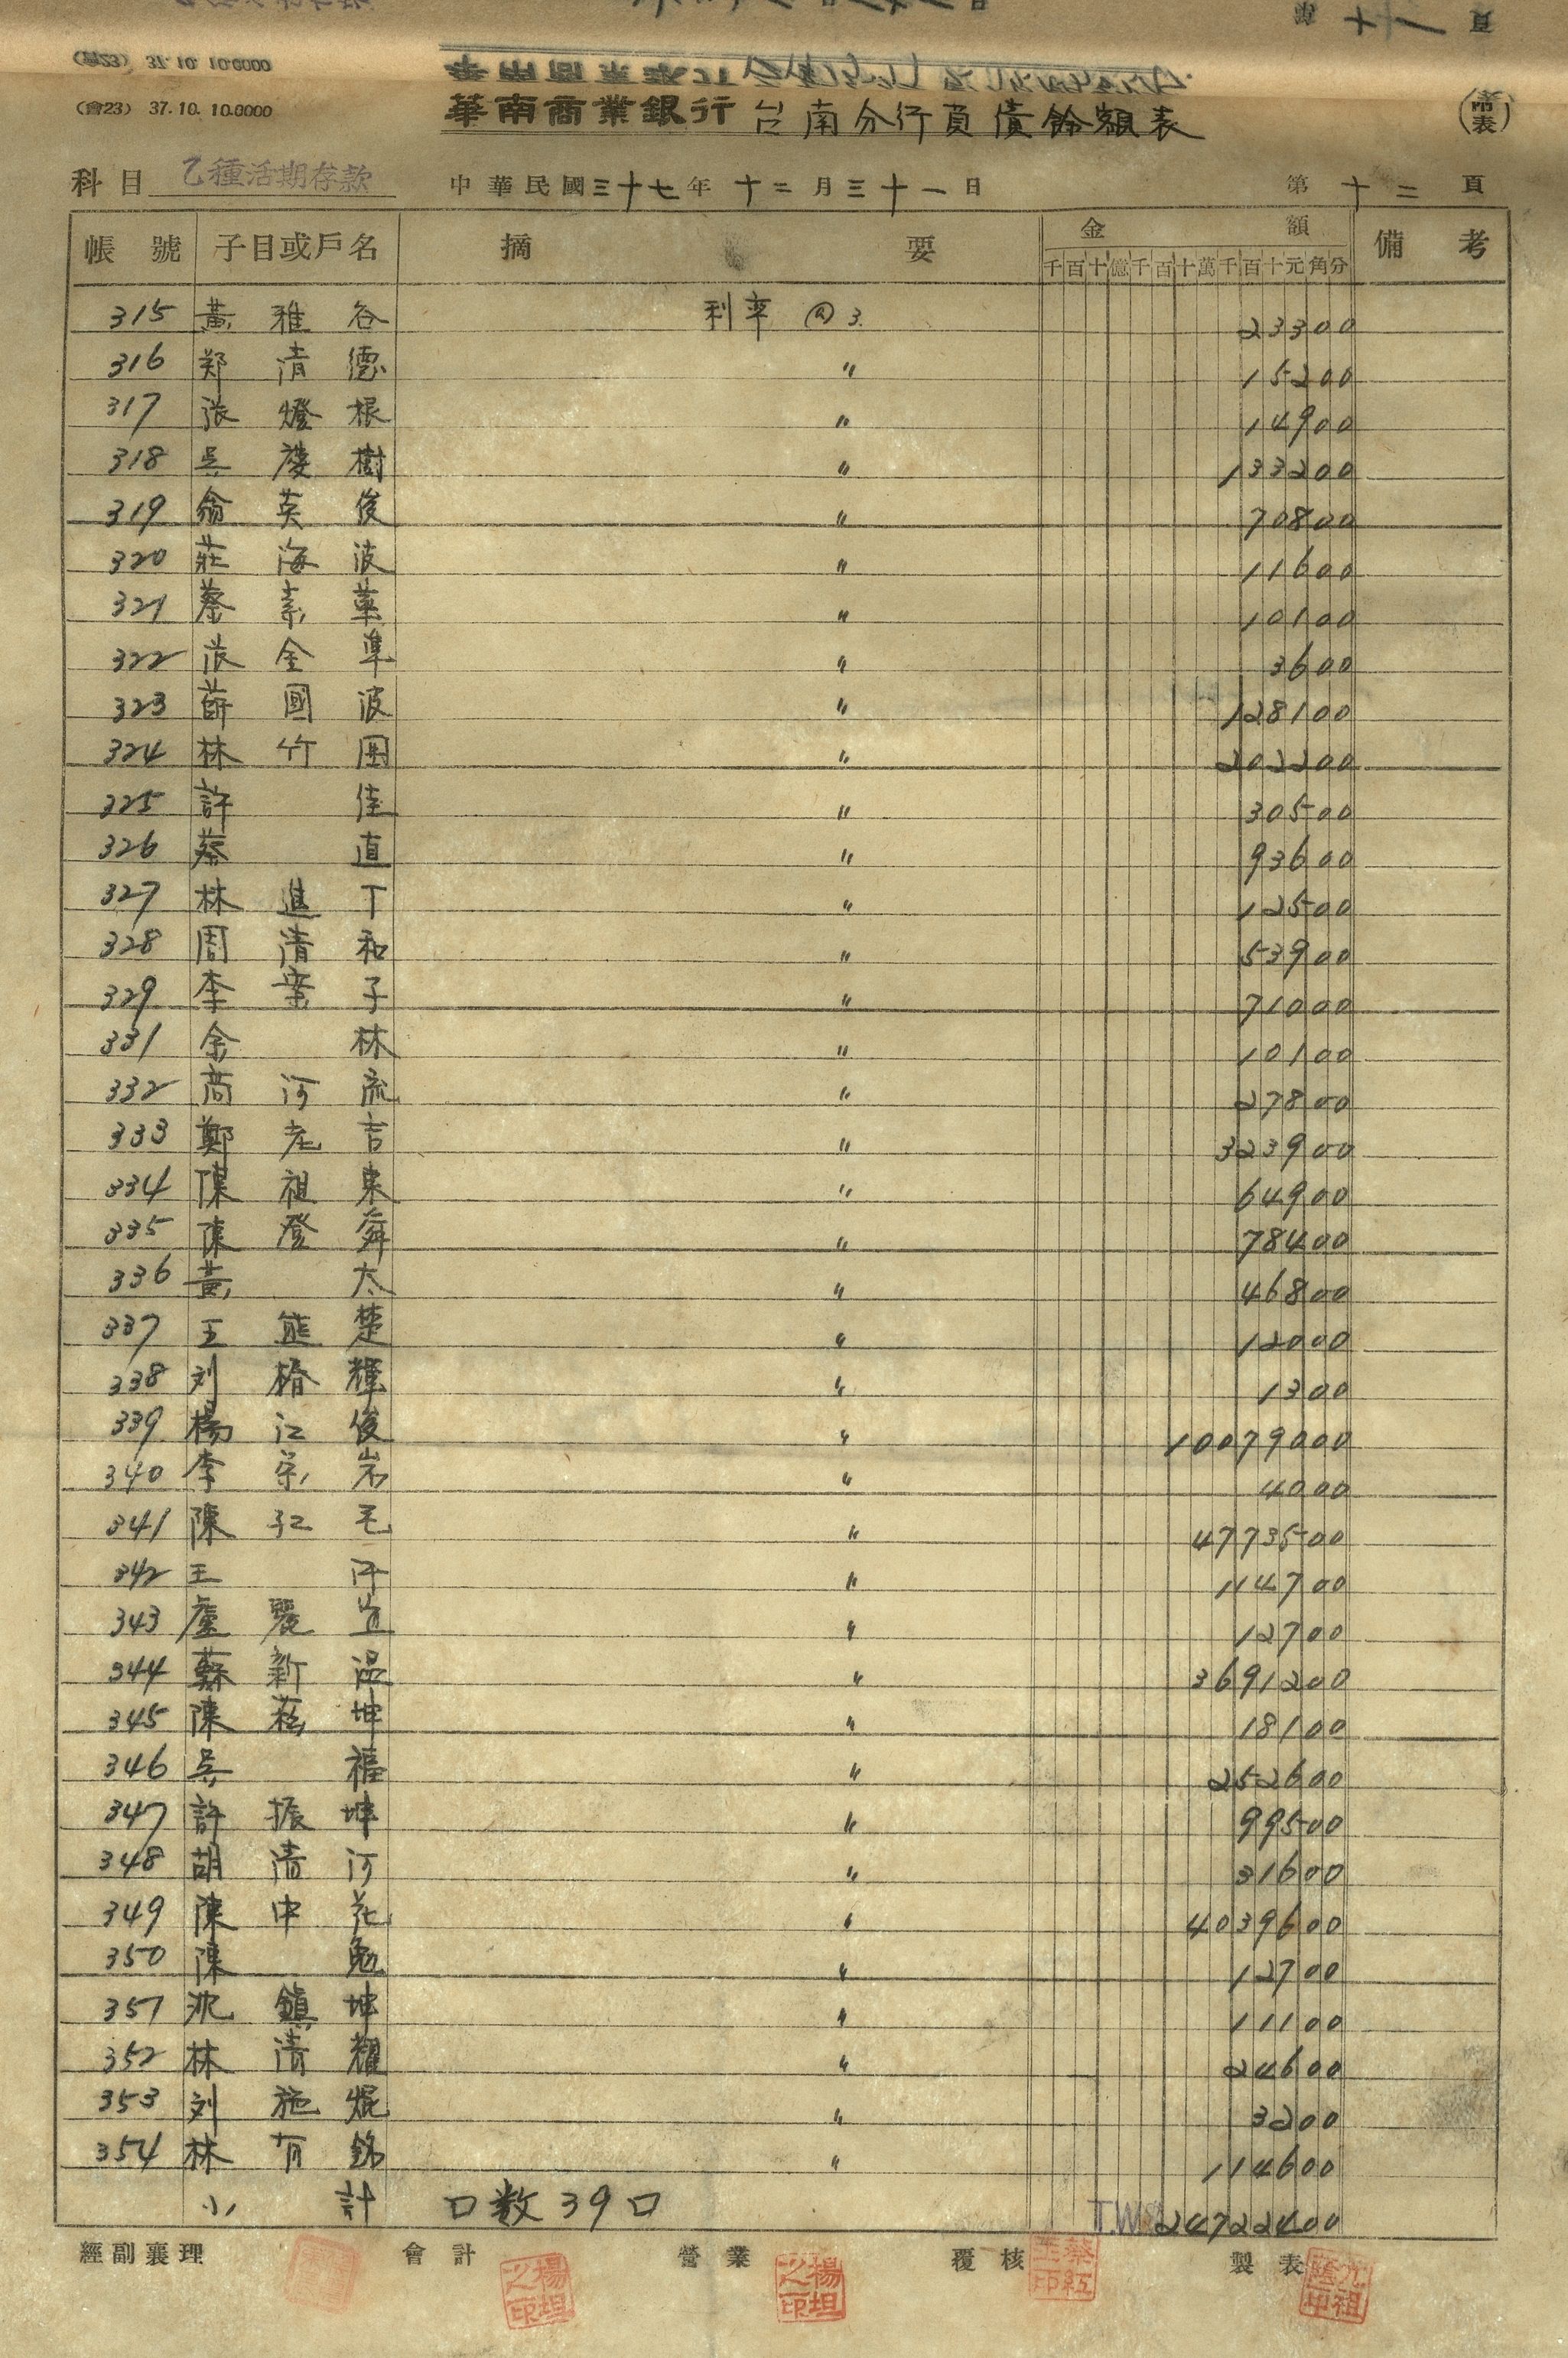 第 十一 頁
(會23) 37.10. 10.0000
華南商業銀行 台南分行負債餘額表
科目 乙種活期存款 中華民國三十七年 十二月三十一日 第 十二 頁
帳號 子目或戶名 摘要 金額 備考
千百十億千百十萬千百十元角分
315 黃雅谷 利率 @3. 23300
316 郑清德 〃 15200
317 張燈根 〃 14900
318 吳 樹 〃 133200
319 翁英俊 〃 70800
320 莊海波 〃 11600
321 蔡素華 〃 10100
322 張金準 〃 3600
323 薛國波 〃 128100
324 林竹 〃 202200
325 許佳 〃 30500
326 蔡直 〃 93600
327 林進丁 〃 12500
328 周清和 〃 53900
329 李葉子 〃 71000
331 余林 〃 10100
332 商河流 〃 27800
333 鄭老吉 〃 323900
334 陳祖東 〃 64900
335 陳登舜 〃 78400
336 黃太 〃 46800
337 王熊楚 〃 12000
338 刘椿輝 〃 1300
339 楊江俊 〃 10079000
340 李宗岩 〃 4000
341 陳紅毛 〃 4773500
342 王 〃 114700
343 盧麗 〃 12700
344 蘇新温 〃 3691200
345 陳 坤 〃 18100
346 吳福 〃 252600
347 許振坤 〃 99500
348 胡清河 〃 31600
349 陳中花 〃 4039600
350 陳勉 〃 12700
351 沈鎮坤 〃 11100
352 林清耀 〃 24600
353 刘施焜 〃 3200
354 林有銘 〃 114600
小計 口数39口 T.W 24722400
經副襄理 會計 營業 覆核 製表
楊坦之印 楊坦之印